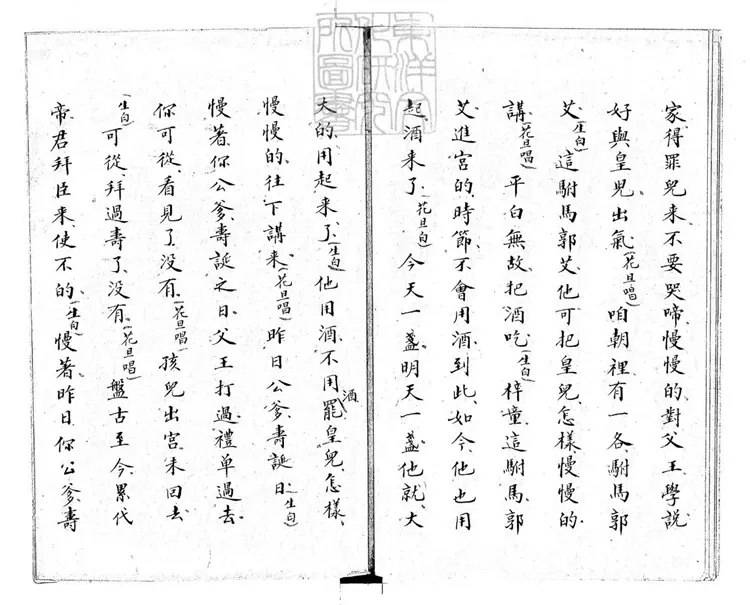 家得罪兒來不要哭啼慢慢的對父王學說
好與皇兒出氣(花旦唱)咱朝裡有一各駙馬郭
艾(生白)這駙馬郭艾他可把皇兒怎樣慢慢的
講(花旦唱)平白無故把酒吃(生白)梓童這駙馬郭
艾進宮的時節不會用酒到此如今他也用
起酒來了(花旦白)今天一盞明天一盞他就大
大的用起來了(生白)他用酒不用酒罷皇兒怎樣
慢慢的往下講來(花旦唱)昨日公爹壽誕日(生白)
慢著你公爹壽誕之日父王打過禮单過去
你可從看見了没有(花旦唱)孩兒出宮未回去
(生白)可從拜過壽了没有(花旦唱)盤古至今累代
帝君拜臣來使不的(生白)慢著昨日你公爹壽
東洋文化研究所圖書